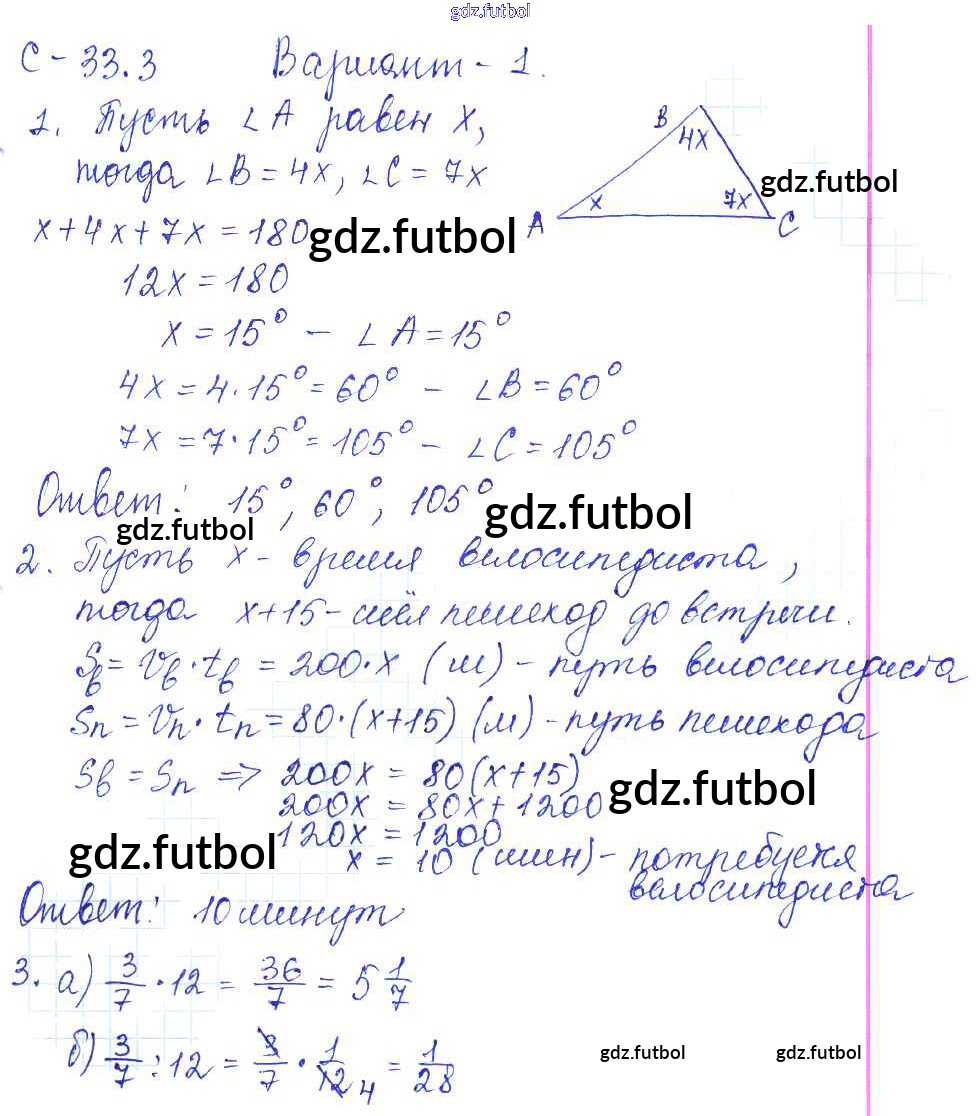 gdz.futbol
С - 33.3 Вариант - 1.
1. Пусть ∠A равен x,
тогда ∠B = 4x, ∠C = 7x
B
4x
x
7x
A
C
gdz.futbol
x + 4x + 7x = 180
gdz.futbol
12x = 180
x = 15° - ∠A = 15°
4x = 4·15° = 60° - ∠B = 60°
7x = 7·15° = 105° - ∠C = 105°
Ответ: 15°, 60°, 105°
gdz.futbol
gdz.futbol
2. Пусть x - время велосипедиста,
тогда x+15 - шёл пешеход до встречи.
Sв = Vв·tв = 200·x (м) - путь велосипедиста
Sп = Vп·tп = 80·(x+15) (м) - путь пешехода
Sв = Sп => 200x = 80(x+15)
200x = 80x + 1200
gdz.futbol
120x = 1200
gdz.futbol
x = 10 (мин) - потребуется
велосипедиста
Ответ: 10 минут
3. а) 3/7 · 12 = 36/7 = 5 1/7
б) 3/7 : 12 = 3/7 · 1/12 4 = 1/28
gdz.futbol
gdz.futbol